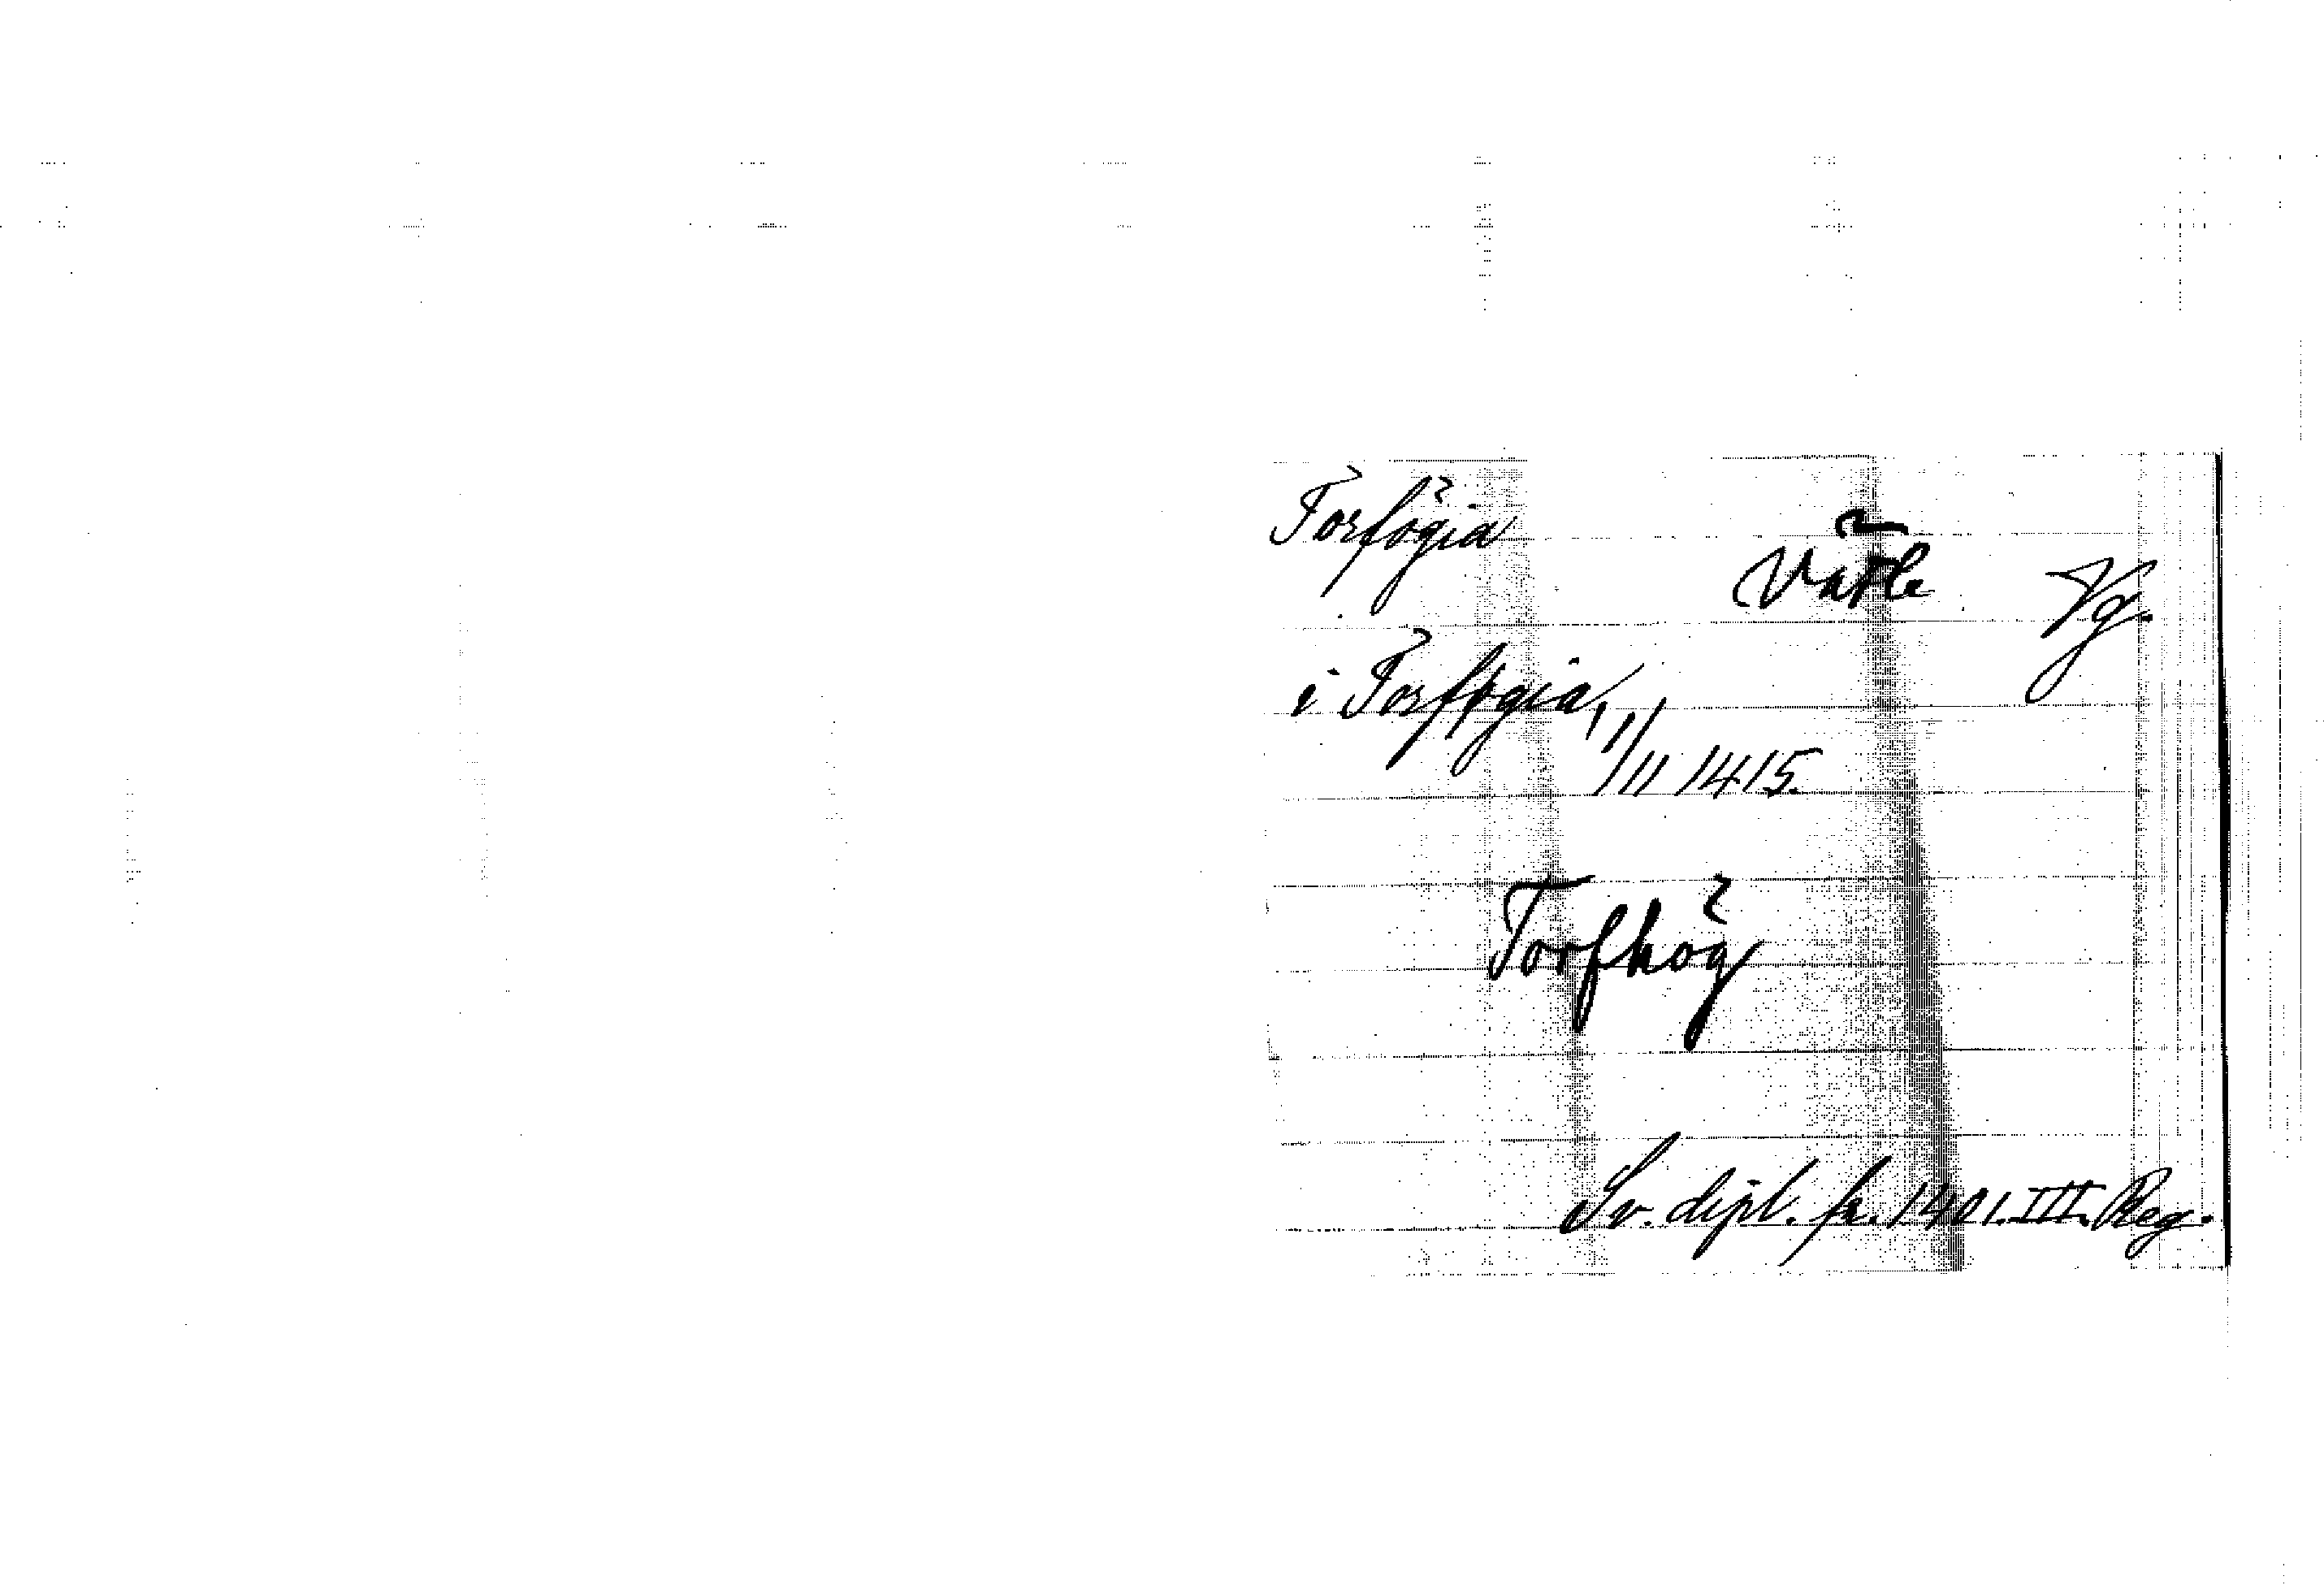 Torfögia
Vätle Vg.
i Torfføgia,
1/11 1415.
Torfhög
Sv. dipl. fr. 1401. III. Reg.